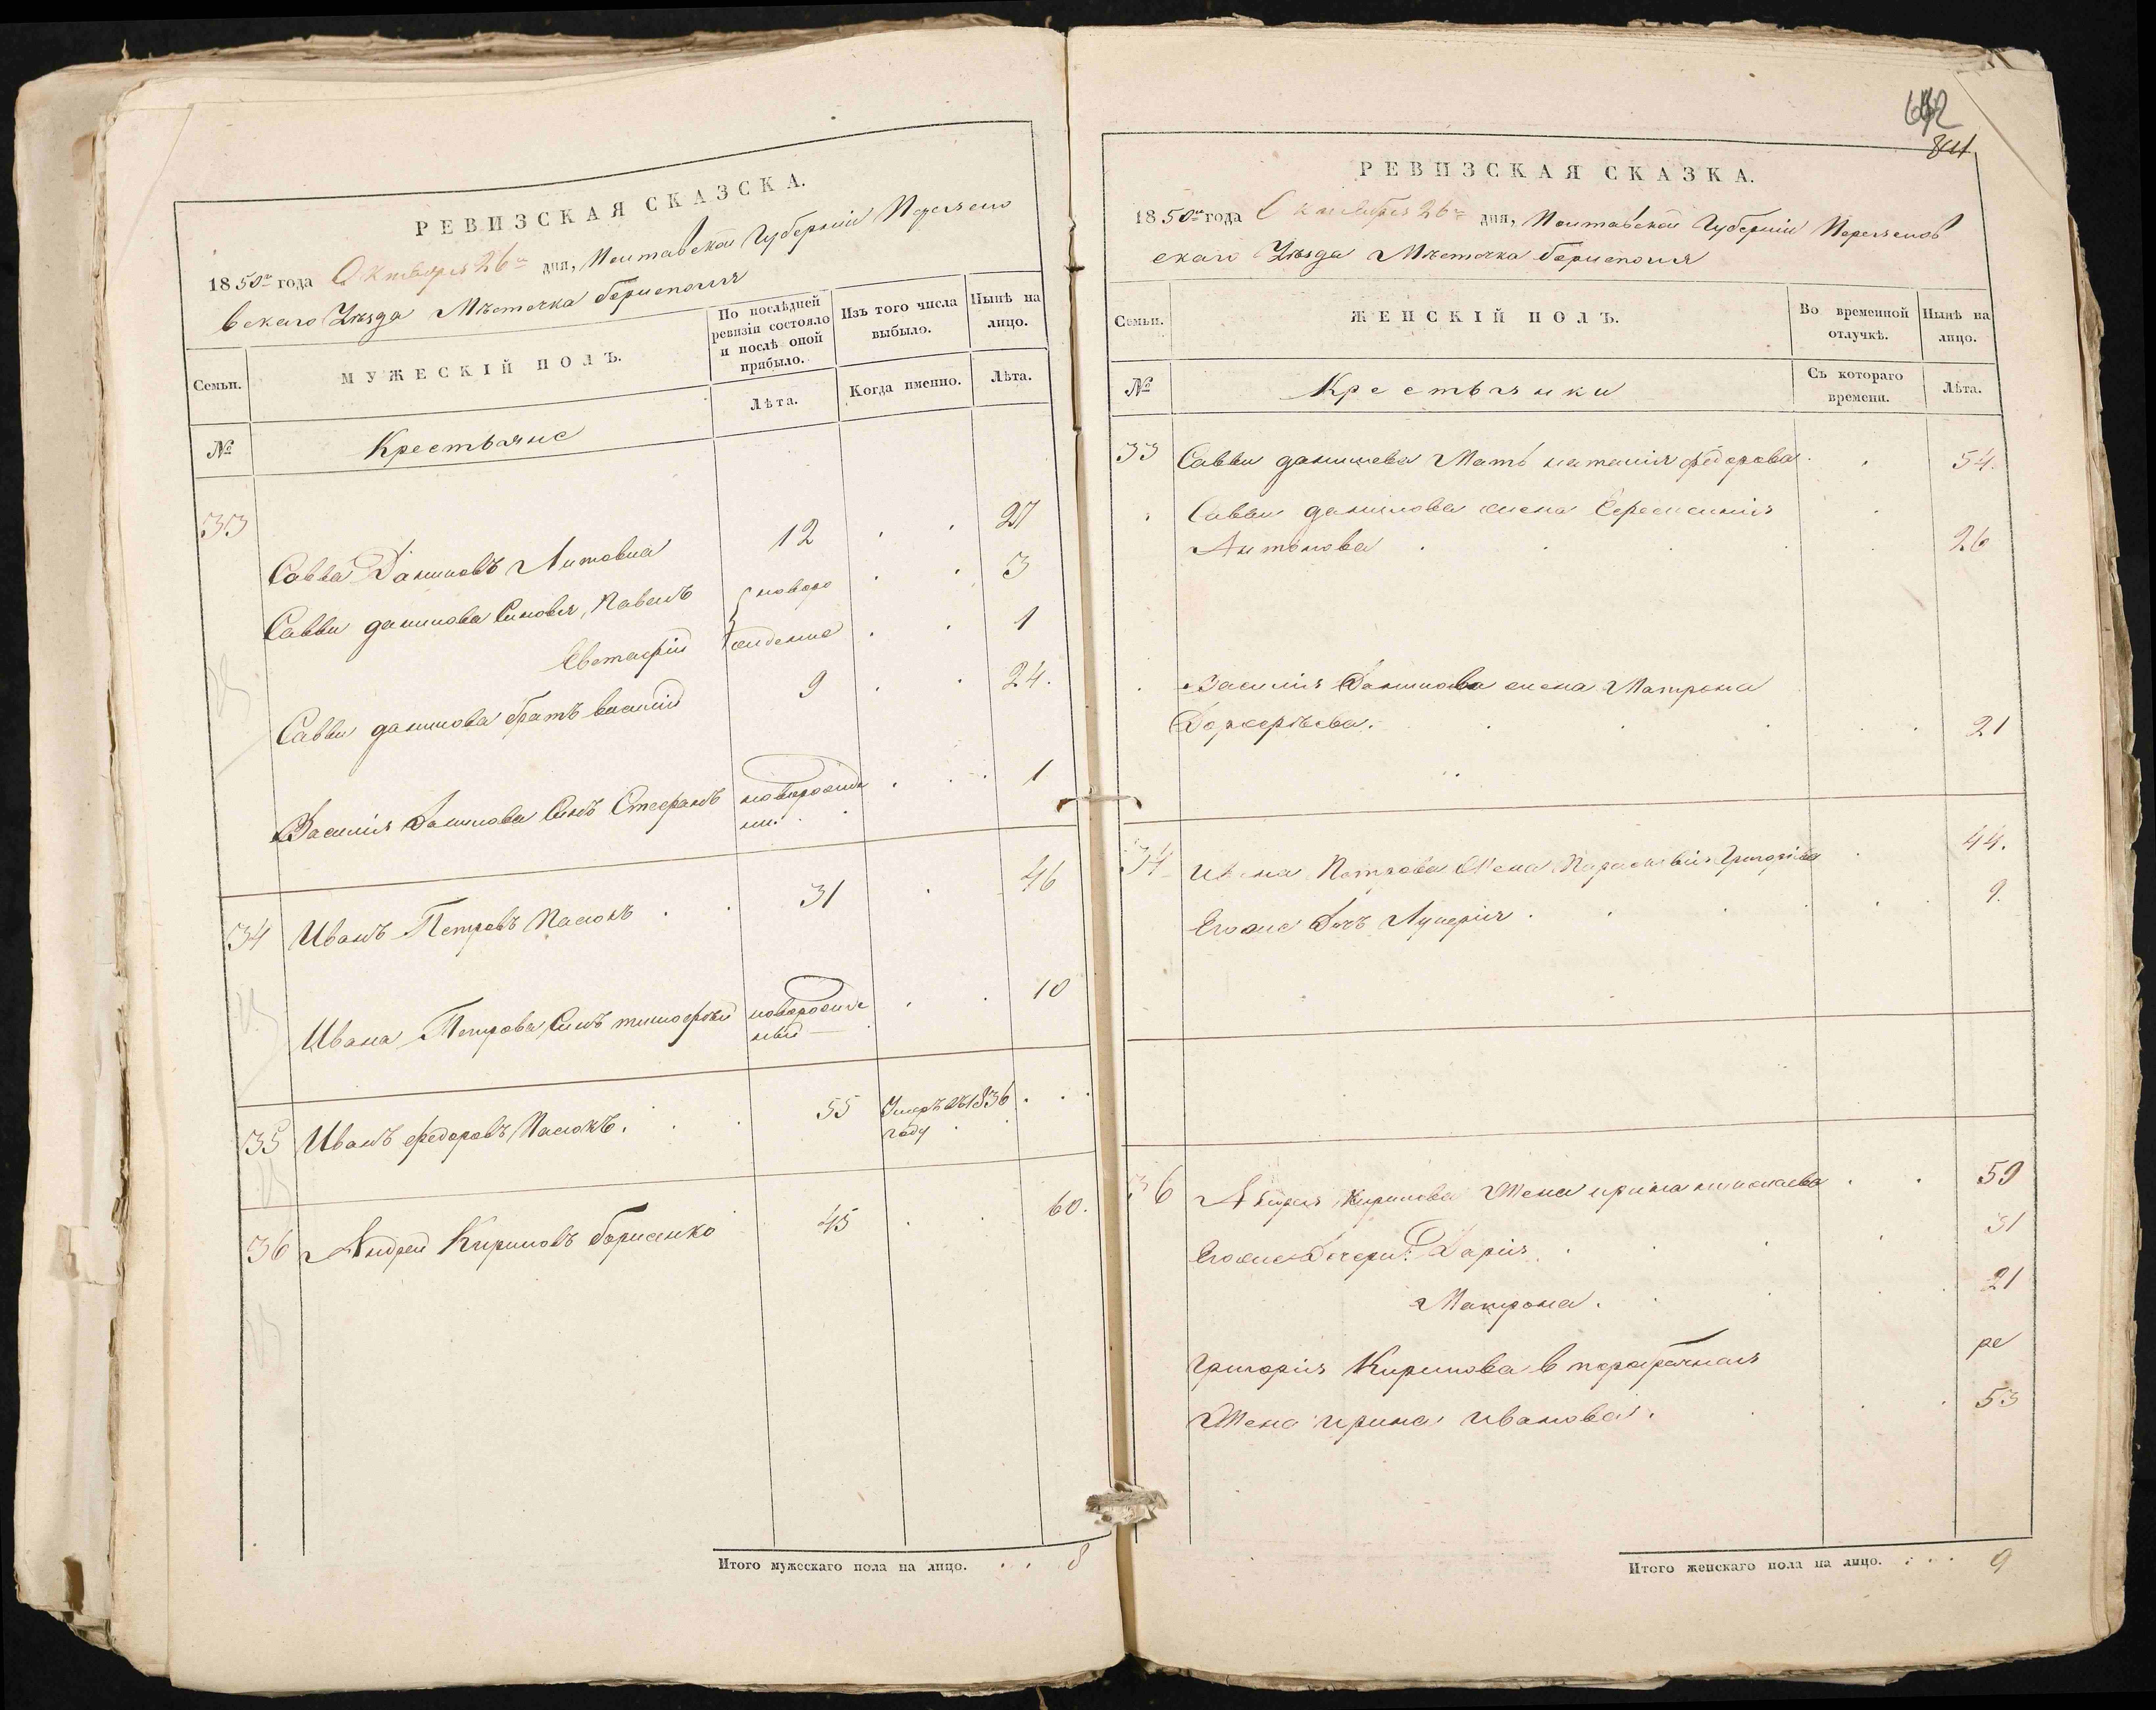 РЕВИЗСКАЯ СКАЗСКА.
1850го года Октября 26го дня, Полтавской Губерніи Переясло
вскаго Уѣзда Мѣстечка Борисполя
Семьи.
МУЖЕСКІЙ ПОЛЪ.
По послѣдней ревизіи состояло и послѣ оной прибыло.
Изъ того числа выбыло.
Нынѣ на лицо.
№
Крестьяне
Лѣта.
Когда именно.
Лѣта.
33
Савва Даниловъ Литовка 12 27
Саввы данилова Сыновья, Павелъ новоро 3
Евстафій жденные 1
Саввы данилова братъ василій 9 24.
Василія Данилова Сынъ Стефанъ новорожде 1
ный
34 Иванъ Петровъ Пасюкъ 31 46
Ивана Петрова Сынъ тимофѣй новорожде 10
ный
35 Иванъ федоровъ Пасюкъ. 55 Умеръ въ 1836
году
36 Андрей Кириловъ борисенко 45 60.
Итого мужескаго пола на лицо. 8
642
841
РЕВИЗСКАЯ СКАЗКА.
1850го года Октября 26го дня, Полтавской Губерніи Переяслов
скаго Уѣзда Мѣстечка борисполя
Семьи.
ЖЕНСКІЙ ПОЛЪ.
Во временной отлучкѣ.
Нынѣ на лицо.
№
Крестьянки
Съ котораго времени.
Лѣта.
33 Саввы данилова Мать наталія федорова 54.
Саввы данилова жена
Антонова 26
Василія Данилова жена Матрона
21
34 Ивана Петрова Жена Параскевія Григорьева 44.
Егоже Дочь Лукерія 9.
36 Андрея Кирилова Жена ирина николаева 59
Егоже Дочери: Дарія 31
Матрона. 21
Григорія Кирилова
ре
Жена ирина иванова. 53
Итого женскаго пола на лицо. 9